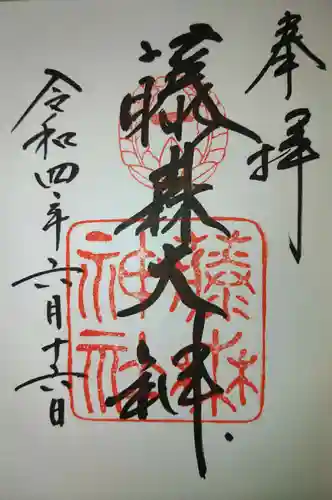 奉拝
藤森大神
藤森神社
令和四年六月十六日